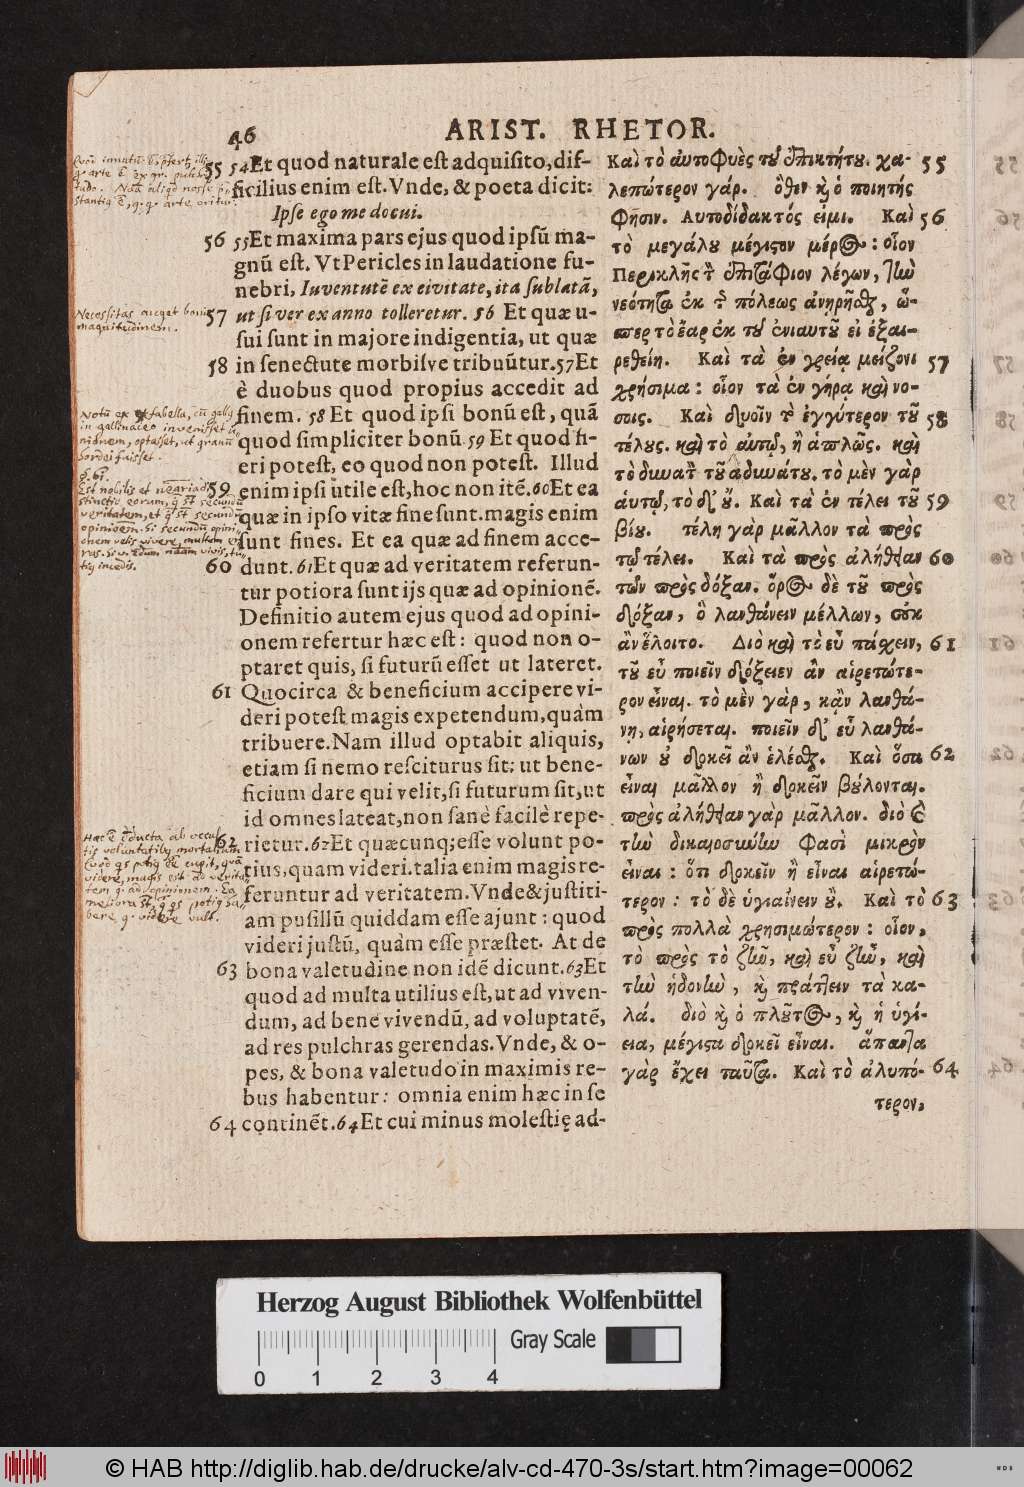 46
ARIST. RHETOR.
55 54Et quod naturale est adquisito, dif-
ficilius enim est. Vnde, & poeta dicit:
Ipse ego me docui.
56 55Et maxima pars ejus quod ipsũ ma-
gnũ est. Vt Pericles in laudatione fu-
nebri, Iuventutẽ ex eivitate, ita sublatã,
57 ut si ver ex anno tolleretur. 56 Et quæ u-
sui sunt in majore indigentia, ut quæ
58 in senectute morbisve tribuũtur. 57Et
è duobus quod propius accedit ad
finem. 58 Et quod ipsi bonũ est, quã
quod simpliciter bonũ. 59 Et quod fi-
eri potest, eo quod non potest. Illud
59 enim ipsi utile est, hoc non itẽ. 60Et ea
quæ in ipso vitæ fine sunt. magis enim
sunt fines. Et ea quæ ad finem acce-
60 dunt. 61Et quæ ad veritatem referun-
tur potiora sunt ijs quæ ad opinionẽ.
Definitio autem ejus quod ad opini-
onem refertur hæc est: quod non o-
ptaret quis, si futurũ esset ut lateret.
61 Quocirca & beneficium accipere vi-
deri potest magis expetendum, quàm
tribuere. Nam illud optabit aliquis,
etiam si nemo resciturus sit: ut bene-
ficium dare qui velit, si futurum sit, ut
id omnes lateat, non sanè facilè repe-
62 rietur. 62Et quæcunq; esse volunt po-
tius, quam videri. talia enim magis re-
feruntur ad veritatem. Vnde & justiti-
am pusillũ quiddam esse ajunt: quod
videri justũ, quàm esse præstet. At de
63 bona valetudine non idẽ dicunt. 63Et
quod ad multa utilius est, ut ad viven-
dum, ad bene vivendũ, ad voluptatẽ,
ad res pulchras gerendas. Vnde, & o-
pes, & bona valetudo in maximis re-
bus habentur: omnia enim hæc in se
64 continẽt. 64Et cui minus molestię ad-
Καὶ τὸ αὐτοφυὲς τοῦ ἐπικτήτου. χα- 55
λεπώτερον γάρ. ὅθεν καὶ ὁ ποιητής
φησιν. Αὐτοδίδακτός εἰμι. Καὶ 56
τὸ μεγάλου μέγιστον μέρος: οἷον
Περικλῆς τὸν ἐπιτάφιον λέγων, τὴν
νεότητα ἐκ τῆς πόλεως ἀνῃρῆσθαι, ὥ-
σπερ τὸ ἔαρ ἐκ τοῦ ἐνιαυτοῦ εἰ ἐξαι-
ρεθείη. Καὶ τὰ ἐν χρείᾳ μείζονι 57
χρήσιμα: οἷον τὰ ἐν γήρᾳ καὶ νό-
σοις. Καὶ δυοῖν τὸ ἐγγύτερον τοῦ 58
τέλους. καὶ τὸ αὑτῷ, ἢ ἁπλῶς. καὶ
τὸ δυνατὸν τοῦ ἀδυνάτου. τὸ μὲν γὰρ
αὑτῷ, τὸ δ' οὔ. Καὶ τὰ ἐν τέλει τοῦ 59
βίου. τέλη γὰρ μᾶλλον τὰ πρὸς
τῷ τέλει. Καὶ τὰ πρὸς ἀλήθειαν 60
τῶν πρὸς δόξαν. ὅρος δὲ τοῦ πρὸς
δόξαν, ὃ λανθάνειν μέλλων, οὐκ
ἂν ἕλοιτο. Διὸ καὶ τὸ εὖ πάσχειν, 61
τοῦ εὖ ποιεῖν δόξειεν ἂν αἱρετώτε-
ρον εἶναι. τὸ μὲν γὰρ, κἂν λανθά-
νῃ, αἱρήσεται. ποιεῖν δ' εὖ λανθά-
νων οὐ δοκεῖ ἂν ἑλέσθαι. Καὶ ὅσα 62
εἶναι μᾶλλον ἢ δοκεῖν βούλονται.
πρὸς ἀλήθειαν γὰρ μᾶλλον. διὸ καὶ
τὴν δικαιοσύνην φασὶ μικρὸν
εἶναι: ὅτι δοκεῖν ἢ εἶναι αἱρετώ-
τερον: τὸ δὲ ὑγιαίνειν οὔ. Καὶ τὸ 63
πρὸς πολλὰ χρησιμώτερον: οἷον,
τὸ πρὸς τὸ ζῆν, καὶ εὖ ζῆν, καὶ
τὴν ἡδονὴν, καὶ πράττειν τὰ κα-
λά. διὸ καὶ ὁ πλοῦτος, καὶ ἡ ὑγί-
εια, μέγιστα δοκεῖ εἶναι. ἅπαντα
γὰρ ἔχει ταῦτα. Καὶ τὸ ἀλυπό- 64
τερον,
Necessitas auget boni
magnitudinem.
Herzog August Bibliothek Wolfenbüttel
Gray Scale
0 1 2 3 4
© HAB http://diglib.hab.de/drucke/alv-cd-470-3s/start.htm?image=00062